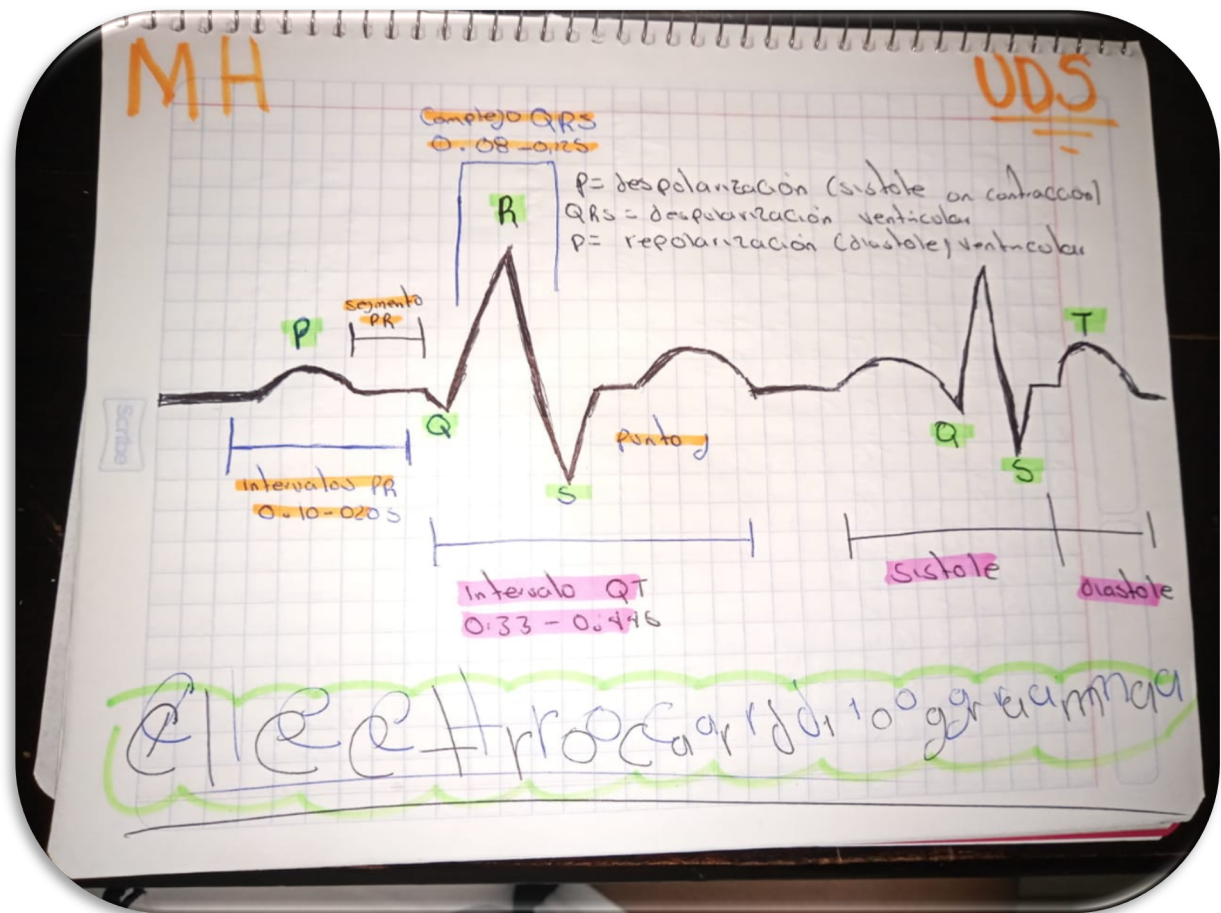 MH
UDS
Complejo QRS
0.08-0.12s
P= despolarización (sistole en contracción)
QRS = despolarización ventricular
P= repolarización (diastole) ventricular
R
segmento
PR
P
T
Q
punto j
Q
S
S
intervalos PR
0.10-020s
Intervalo QT
0.33 - 0.446
Sistole
diastole
Electrocardiograma
Scribe